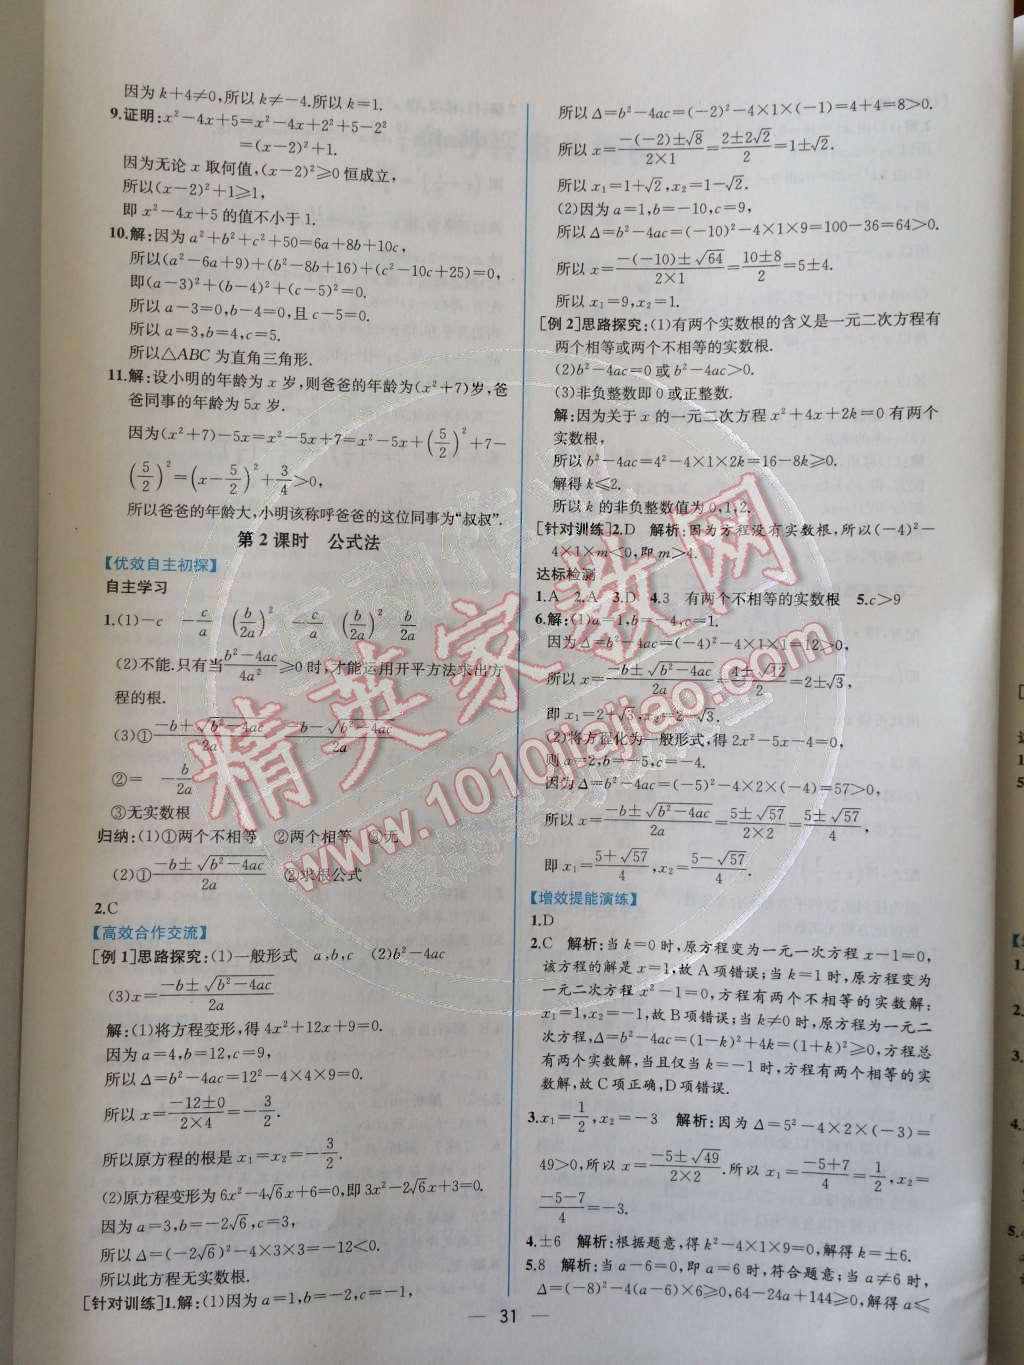 因为k+4≠0,所以k≠-4.所以k=1.
9.证明:x²-4x+5=x²-4x+2²+5-2²
=(x-2)²+1.
因为无论 x 取何值,(x-2)²≥0 恒成立,
所以(x-2)²+1≥1,
即 x²-4x+5 的值不小于 1.
10.解:因为 a²+b²+c²+50=6a+8b+10c,
所以(a²-6a+9)+(b²-8b+16)+(c²-10c+25)=0,
即(a-3)²+(b-4)²+(c-5)²=0.
所以 a-3=0,b-4=0,且 c-5=0.
所以 a=3,b=4,c=5.
所以△ABC 为直角三角形.
11.解:设小明的年龄为 x 岁,则爸爸的年龄为(x²+7)岁,爸
爸同事的年龄为 5x 岁.
因为(x²+7)-5x=x²-5x+7=x²-5x+(5/2)²+7-
(5/2)²=(x-5/2)²+3/4>0,
所以爸爸的年龄大,小明该称呼爸爸的这位同事为“叔叔”.
第 2 课时 公式法
【优效自主初探】
自主学习
1.(1)-c -c/a (b/2a)² -c/a (b/2a)² b/2a
(2)不能.只有当(b²-4ac)/4a²≥0 时,才能运用开平方法求出方
程的根.
(3)①(-b+√(b²-4ac))/2a (-b-√(b²-4ac))/2a
②= -b/2a
③无实数根
归纳:(1)①两个不相等 ②两个相等 ③无
(2)①(-b±√(b²-4ac))/2a ②求根公式
2.C
【高效合作交流】
[例 1]思路探究:(1)一般形式 a,b,c (2)b²-4ac
(3)x=(-b±√(b²-4ac))/2a
解:(1)将方程变形,得 4x²+12x+9=0.
因为 a=4,b=12,c=9,
所以 Δ=b²-4ac=12²-4×4×9=0.
所以 x=(-12±0)/(2×4)=-3/2.
所以原方程的根是 x₁=x₂=-3/2.
(2)原方程变形为 6x²-4√6x+6=0,即3x²-2√6x+3=0.
因为 a=3,b=-2√6,c=3,
所以 Δ=(-2√6)²-4×3×3=-12<0.
所以此方程无实数根.
[针对训练]1.解:(1)因为 a=1,b=-2,c=-1,
所以 Δ=b²-4ac=(-2)²-4×1×(-1)=4+4=8>0.
所以 x=(-(-2)±√8)/(2×1)=(2±2√2)/2=1±√2.
所以 x₁=1+√2,x₂=1-√2.
(2)因为 a=1,b=-10,c=9,
所以 Δ=b²-4ac=(-10)²-4×1×9=100-36=64>0.
所以 x=(-(-10)±√64)/(2×1)=(10±8)/2=5±4.
所以 x₁=9,x₂=1.
[例 2]思路探究:(1)有两个实数根的含义是一元二次方程有
两个相等或两个不相等的实数根.
(2)b²-4ac=0 或 b²-4ac>0.
(3)非负整数即 0 或正整数.
解:因为关于 x 的一元二次方程 x²+4x+2k=0 有两个
实数根,
所以 b²-4ac=4²-4×1×2k=16-8k≥0.
解得 k≤2.
所以 k 的非负整数值为 0,1,2.
[针对训练]2.D 解析:因为方程没有实数根,所以(-4)²-
4×1×m<0,即 m>4.
达标检测
1.A 2.A 3.D 4.3 有两个不相等的实数根 5.c>9
6.解:(1)a=1,b=-4,c=1.
因为 Δ=b²-4ac=(-4)²-4×1×1=12>0,
所以 x=(-b±√(b²-4ac))/2a=(4±√12)/2=2±√3,
即 x₁=2+√3,x₂=2-√3.
(2)将方程化为一般形式,得 2x²-5x-4=0,
则 a=2,b=-5,c=-4.
因为 Δ=b²-4ac=(-5)²-4×2×(-4)=57>0,
所以 x=(-b±√(b²-4ac))/2a=(5±√57)/(2×2)=(5±√57)/4,
即 x₁=(5+√57)/4,x₂=(5-√57)/4.
【增效提能演练】
1.D
2.C 解析:当 k=0 时,原方程变为一元一次方程 x-1=0,
该方程的解是 x=1,故 A 项错误;当 k=1 时,原方程变为
一元二次方程 x²-1=0,方程有两个不相等的实数解:
x₁=1,x₂=-1,故 B 项错误;当 k≠0 时,原方程为一元二
次方程,Δ=b²-4ac=(1-k)²+4k=(1+k)²≥0,方程总
有两个实数解,当且仅当 k=-1 时,方程有两个相等的实
数解,故 C 项正确,D 项错误.
3.x₁=1/2,x₂=-3 解析:因为 Δ=5²-4×2×(-3)=
49>0,所以 x=(-5±√49)/(2×2).所以 x₁=(-5+7)/4=1/2,x₂=
(-5-7)/4=-3.
4.±6 解析:根据题意,得 k²-4×1×9=0,解得 k=±6.
5.8 解析:当 a-6=0,即 a=6 时,符合题意;当 a≠6 时,
Δ=(-8)²-4(a-6)×6≥0,64-24a+144≥0,解得 a≤
— 31 —
精英家教网
www.1010jiajiao.com